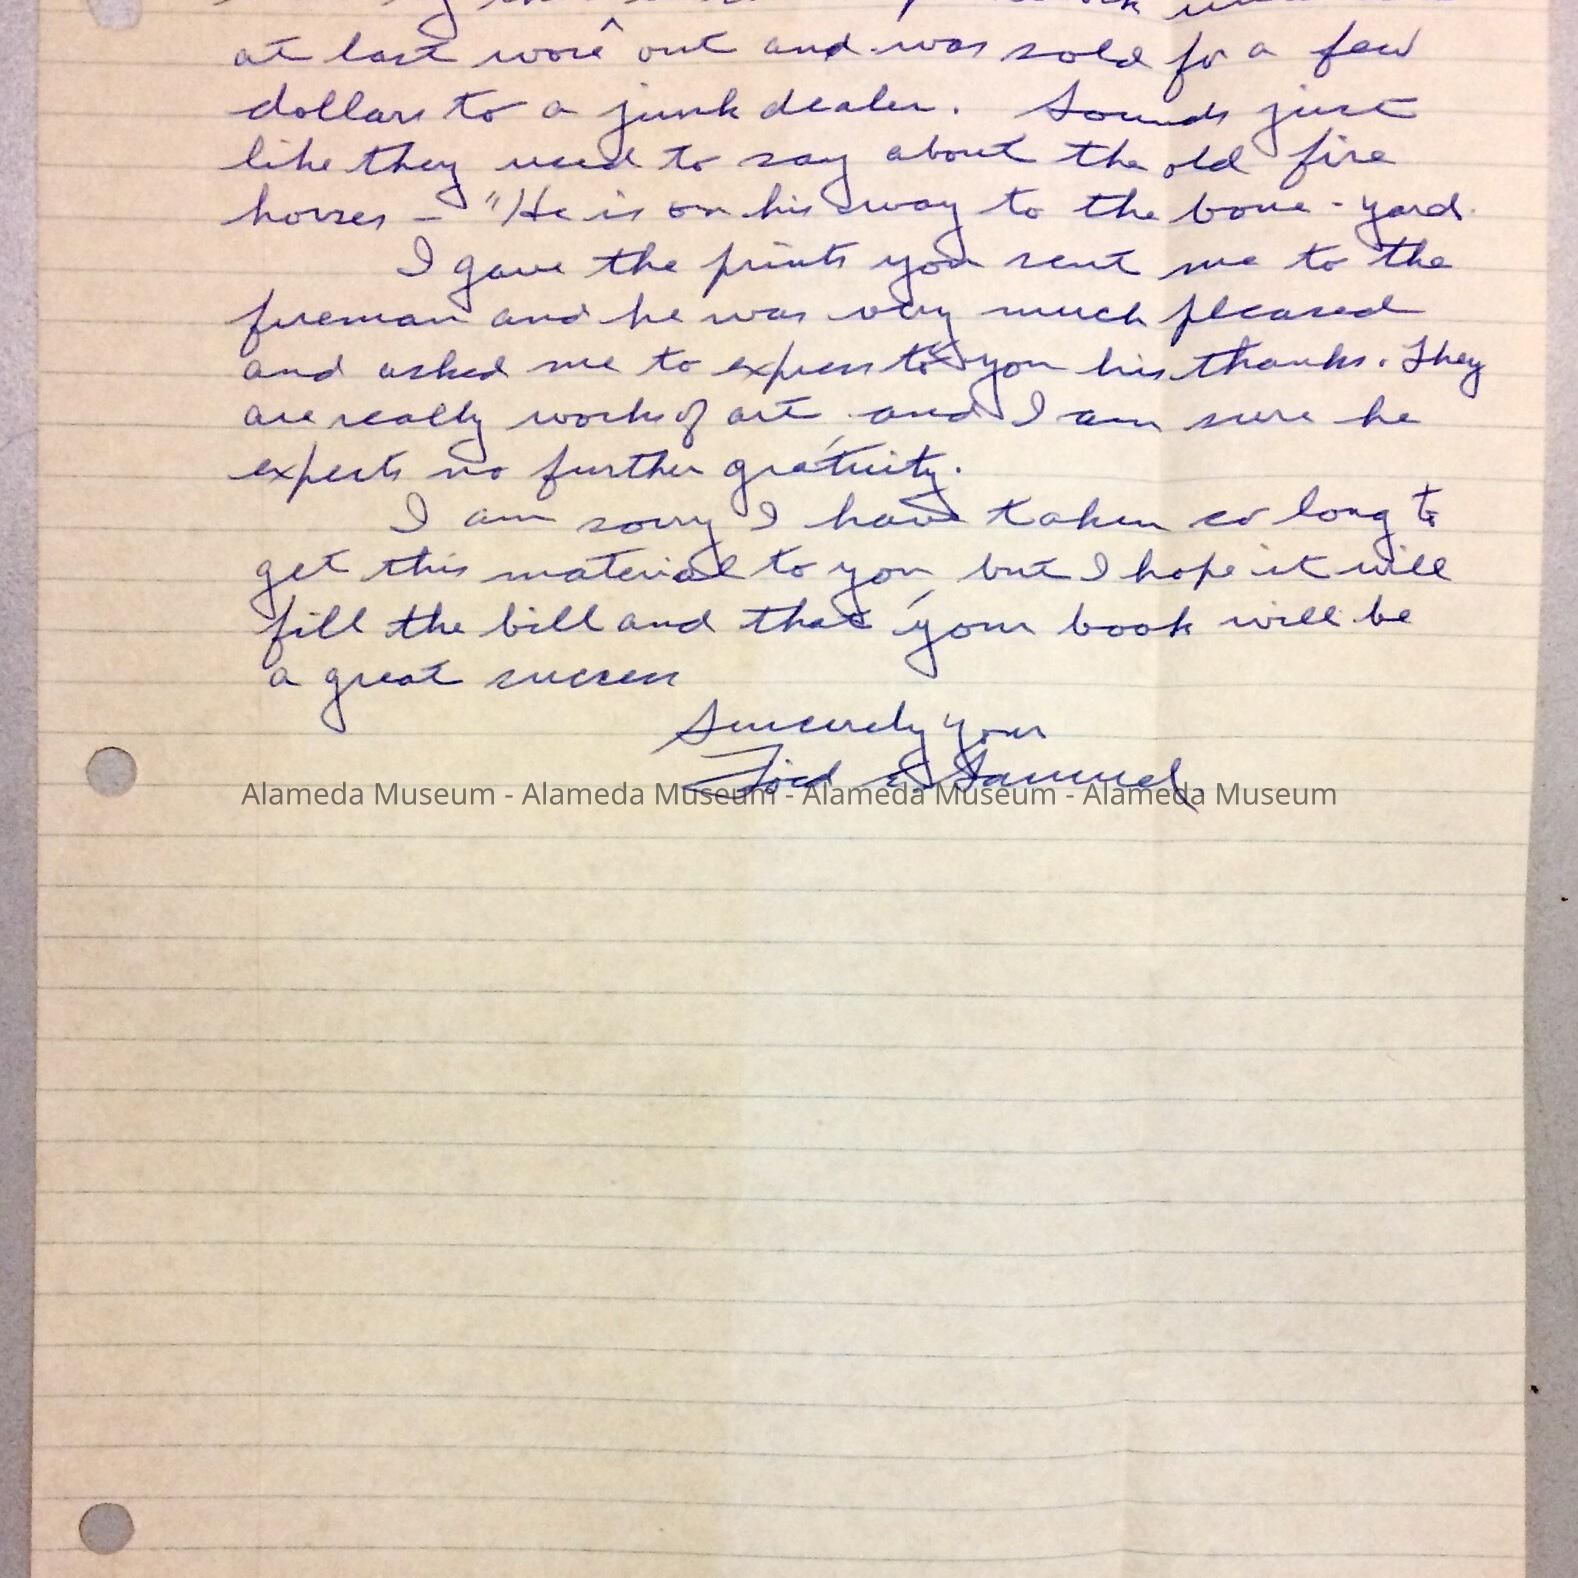 at last wore out and was sold for a few
dollars to a junk dealer. Sounds just
like they used to say about the old fire
horses - "He is on his way to the bone-yard.
I gave the prints you sent me to the
fireman and he was very much pleased
and asked me to express to you his thanks. They
are really works of art and I am sure he
expects no further gratuity.
I am sorry I have taken so long to
get this material to you but I hope it will
fill the bill and that your book will be
a great success
Sincerely yours
Ford E. Samuel
Alameda Museum - Alameda Museum - Alameda Museum - Alameda Museum